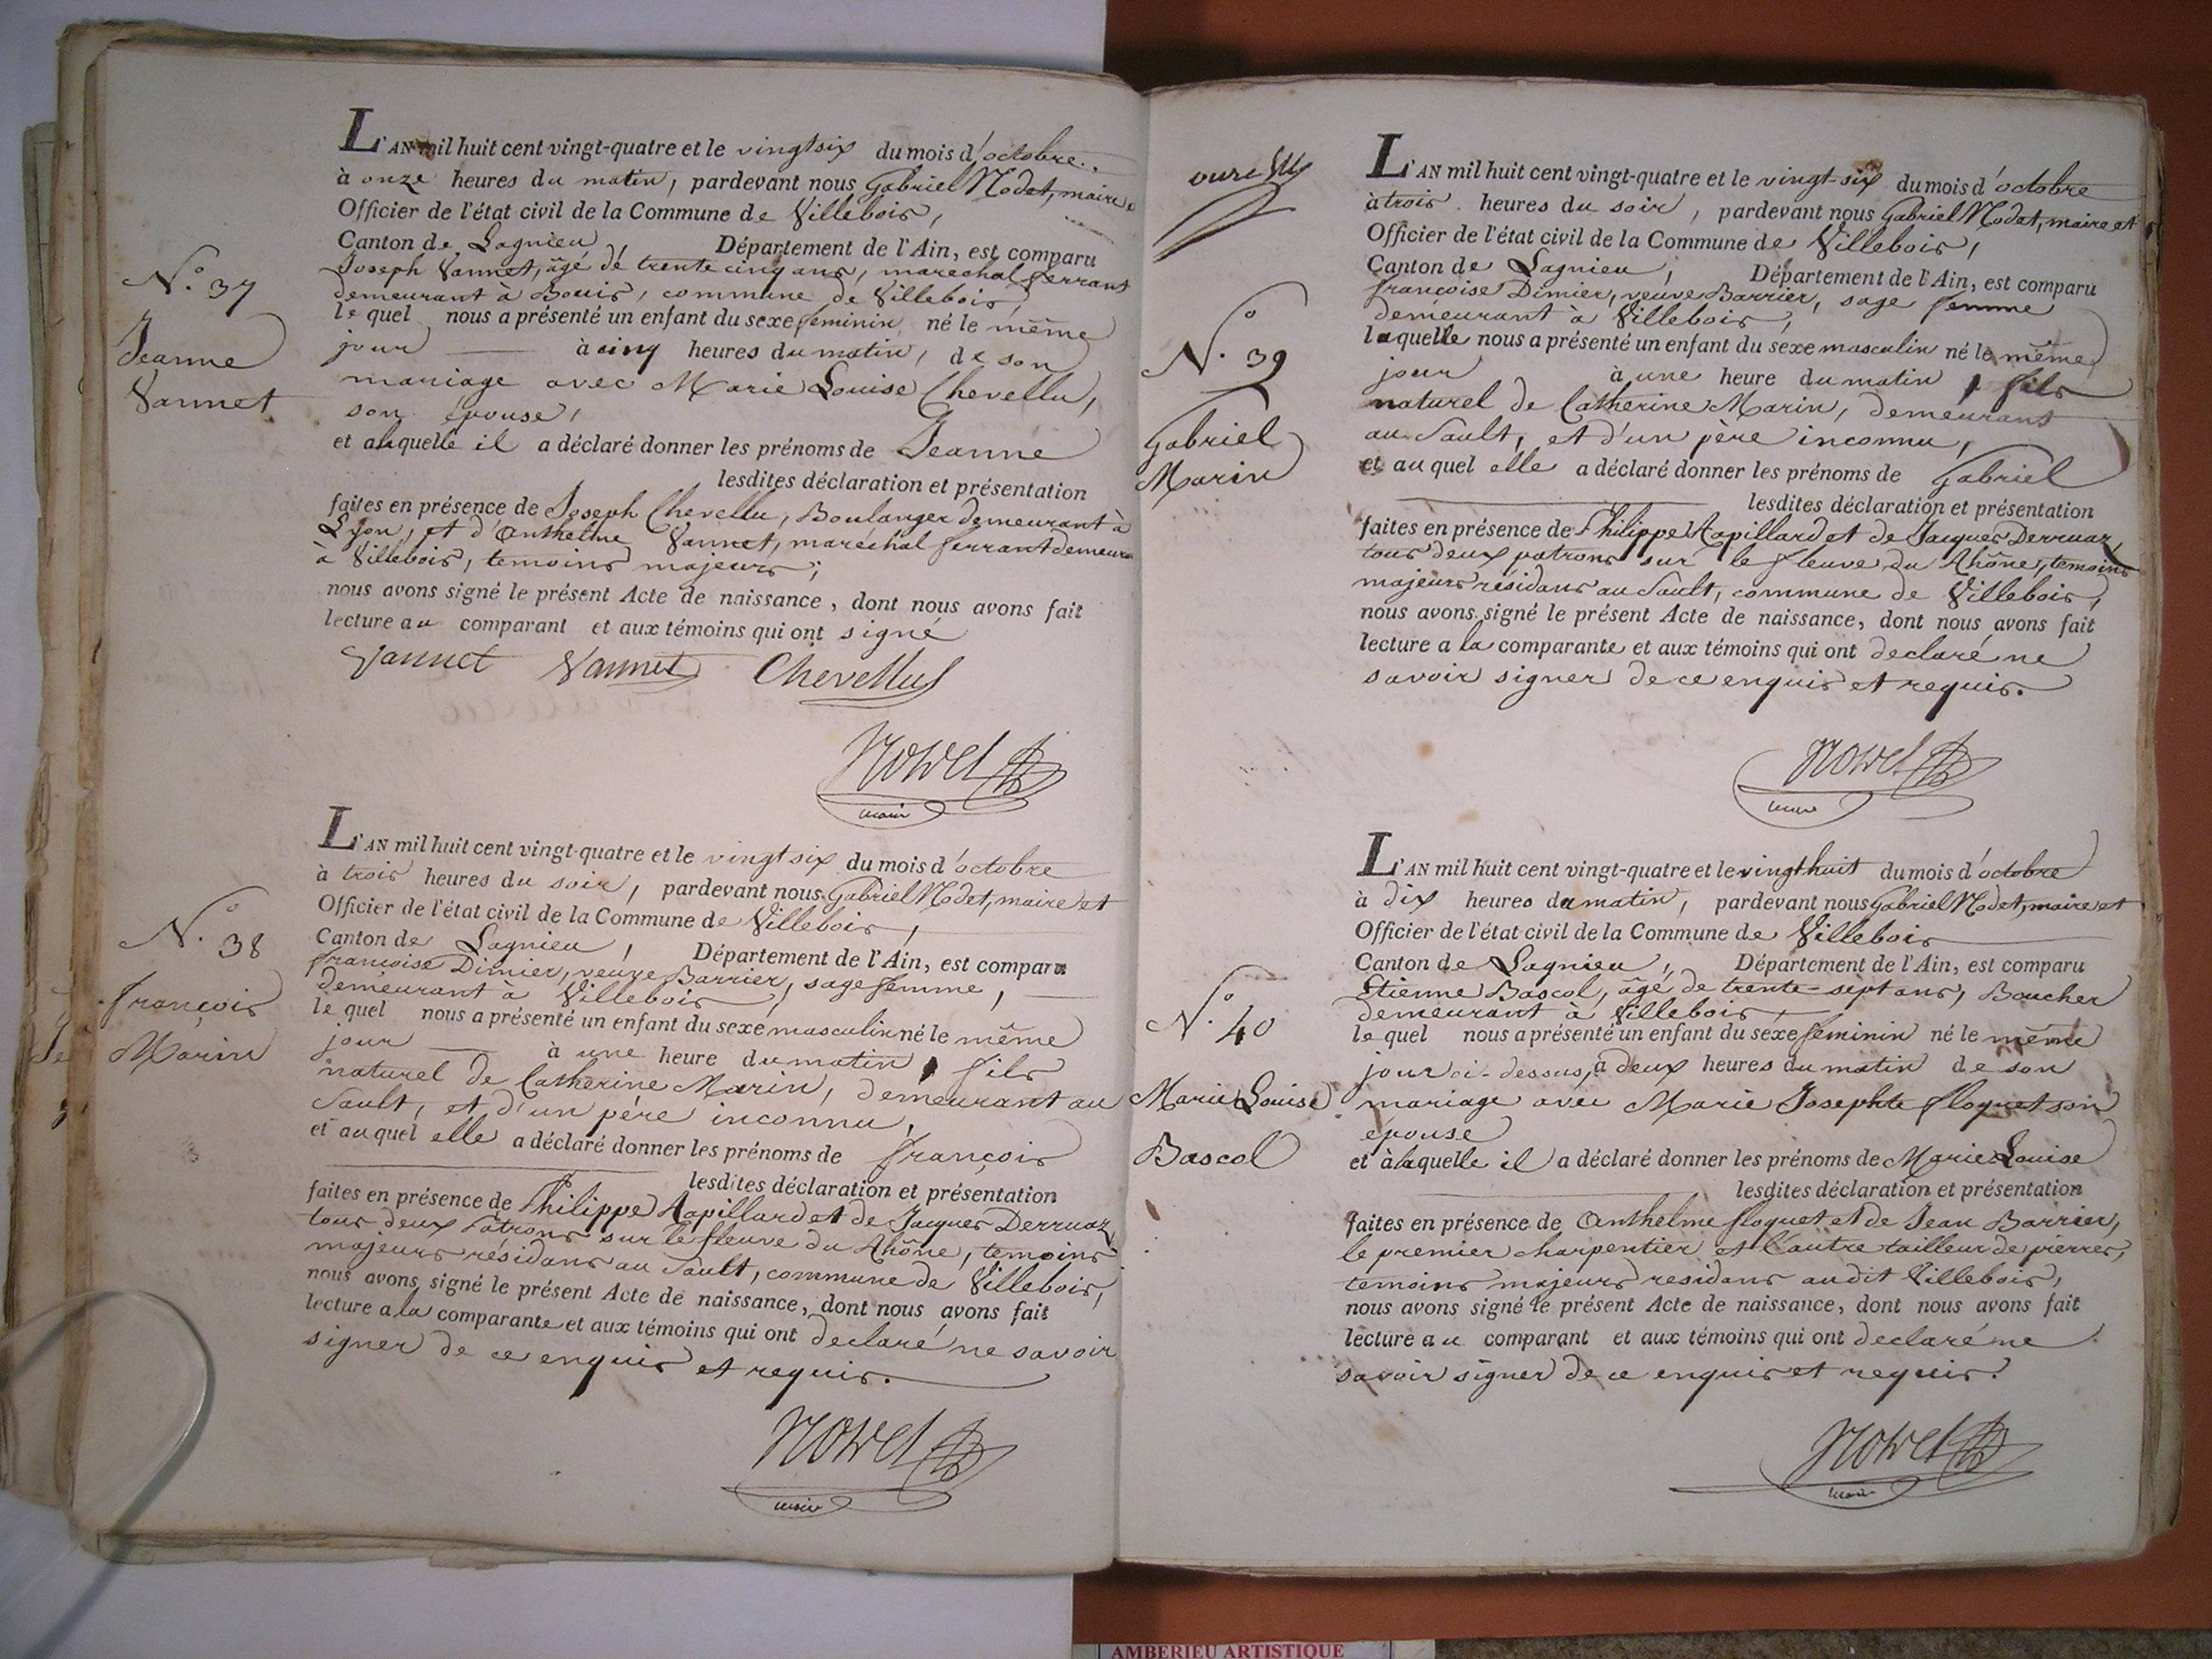 N.° 37
Jeanne
Vannet
L'AN mil huit cent vingt-quatre et le vingt six du mois d'octobre
à onze heures du matin, pardevant nous Gabriel Nodet, maire
Officier de l'état civil de la Commune de Villebois,
Canton de Lagnieu, Département de l'Ain, est comparu
Joseph Vannet, âgé de trente cinq ans, marechal ferrant
demeurant à Bouis, commune de Villebois,
le quel nous a présenté un enfant du sexe feminin né le même
jour à cinq heures du matin, de son
mariage avec Marie Louise Chevellu,
son épouse,
et à laquelle il a déclaré donner les prénoms de Jeanne
lesdites déclaration et présentation
faites en présence de Joseph Chevellu, Boulanger demeurant à
Lyon, et d'Anthelme Vannet, maréchal ferrant demeurant
à Villebois, temoins majeurs;
nous avons signé le présent Acte de naissance, dont nous avons fait
lecture au comparant et aux témoins qui ont signé
Vannet Vannet Chevellus
Nodet
maire
N.° 38
François
Marin
L'AN mil huit cent vingt-quatre et le vingt six du mois d'octobre
à trois heures du soir, pardevant nous Gabriel Nodet, maire et
Officier de l'état civil de la Commune de Villebois,
Canton de Lagnieu, Département de l'Ain, est comparu
françoise Dimier, veuve Barrier, sage femme,
demeurant à Villebois,
le quel nous a présenté un enfant du sexe masculin né le même
jour à une heure du matin, fils
naturel de Catherine Marin, demeurant au
Sault, et d'un père inconnu,
et auquel elle a déclaré donner les prénoms de françois
lesdites déclaration et présentation
faites en présence de Philippe Rapillard et de Jacques Derruaz
tous deux Patrons sur le fleuve du Rhône, temoins
majeurs résidans au Sault, commune de Villebois,
nous avons signé le présent Acte de naissance, dont nous avons fait
lecture a la comparante et aux témoins qui ont declaré ne savoir
signer de ce enquis et requis.
Nodet
maire
N.° 39
Gabriel
Marin
L'AN mil huit cent vingt-quatre et le vingt-six du mois d'octobre
à trois heures du soir, pardevant nous Gabriel Nodet, maire et
Officier de l'état civil de la Commune de Villebois,
Canton de Lagnieu, Département de l'Ain, est comparu
françoise Dimier, veuve Barrier, sage femme
demeurant à Villebois,
laquelle nous a présenté un enfant du sexe masculin né le même
jour à une heure du matin, fils
naturel de Catherine Marin, demeurant
au Sault, et d'un père inconnu,
et auquel elle a déclaré donner les prénoms de Gabriel
lesdites déclaration et présentation
faites en présence de Philippe Rapillard et de Jacques Derruaz,
tous deux patrons sur le fleuve du Rhône, temoins
majeurs résidans au Sault, commune de Villebois,
nous avons signé le présent Acte de naissance, dont nous avons fait
lecture a la comparante et aux témoins qui ont declaré ne
savoir signer de ce enquis et requis.
Nodet
maire
N.° 40
Marie Louise
Bascol
L'AN mil huit cent vingt-quatre et le vingt huit du mois d'octobre
à dix heures du matin, pardevant nous Gabriel Nodet, maire et
Officier de l'état civil de la Commune de Villebois
Canton de Lagnieu, Département de l'Ain, est comparu
Etienne Bascol, âgé de trente-sept ans, Boucher
demeurant à Villebois
le quel nous a présenté un enfant du sexe feminin né le même
jour ci-dessus, à deux heures du matin de son
mariage avec Marie Josephte floquet son
epouse
et à laquelle il a déclaré donner les prénoms de Marie Louise
lesdites déclaration et présentation
faites en présence de Anthelme floquet et de Jean Barrier,
le premier charpentier et l'autre tailleur de pierres,
temoins majeurs residans audit Villebois,
nous avons signé le présent Acte de naissance, dont nous avons fait
lecture au comparant et aux témoins qui ont declaré ne
savoir signer de ce enquis et requis.
Nodet
maire
AMBERIEU ARTISTIQUE